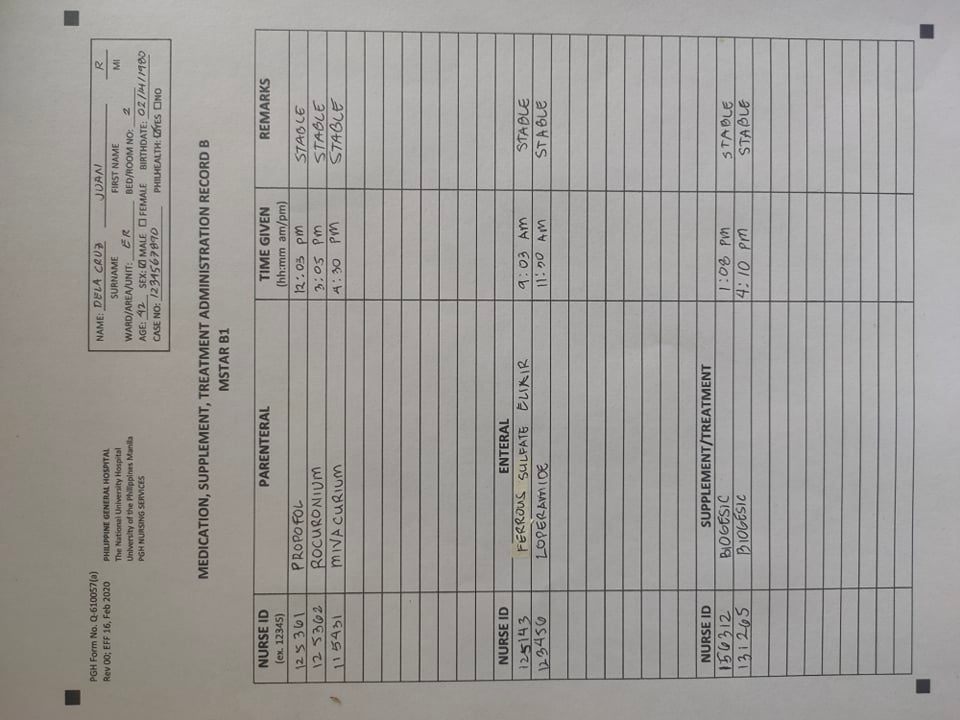 PGH Form No. Q-610057(a)
Rev 00; EFF 16, Feb 2020
PHILIPPINE GENERAL HOSPITAL
The National University Hospital
University of the Philippines Manila
PGH NURSING SERVICES
NAME: DELA CRUZ JUAN R
SURNAME FIRST NAME MI
WARD/AREA/UNIT: ER BED/ROOM NO: 2
AGE: 42 SEX: ☑ MALE ☐ FEMALE BIRTHDATE: 02/14/1980
CASE NO: 1234567890 PHILHEALTH: ☑YES ☐NO
MEDICATION, SUPPLEMENT, TREATMENT ADMINISTRATION RECORD B
MSTAR B1
NURSE ID PARENTERAL TIME GIVEN REMARKS
(ex. 12345) (hh:mm am/pm)
125361 PROPOFOL 12:03 PM STABLE
125362 ROCURONIUM 3:05 PM STABLE
115431 MIVACURIUM 4:30 PM STABLE
NURSE ID ENTERAL
125143 FERROUS SULFATE ELIXIR 9:03 AM STABLE
123456 LOPERAMIDE AM STABLE
NURSE ID SUPPLEMENT/TREATMENT
156312 BIOGESIC 1:08 PM STABLE
131265 BIOGESIC 4:10 PM STABLE